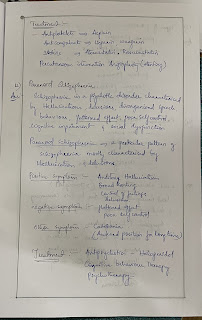 Treatment :-
- Antiplatelets → Aspirin
Anticoagulant → Heparin
Statins → Atorvastatin, Rosuvastatin
Percutaneous Angioplasty (stenting)
Paranoid Schizophrenia.
Ans. Schizophrenia is a psychotic disorder characterised
by Hallucinations, delusions, disorganised speech
behaviour, flattened affect, poor self control,
cognitive impairment & social dysfunction.
Paranoid schizophrenia → a particular pattern of
schizophrenia mostly characterised by
Hallucination & delusions.
Positive symptoms :- Auditory Hallucination
delusions
Negative symptoms :- flattened affect
Poor self control
Other symptoms :- Catatonia
(Awkward position for long time)
Treatment :- Antipsychotics → Haloperidol
Cognitive Behaviour Therapy
Psychotherapy